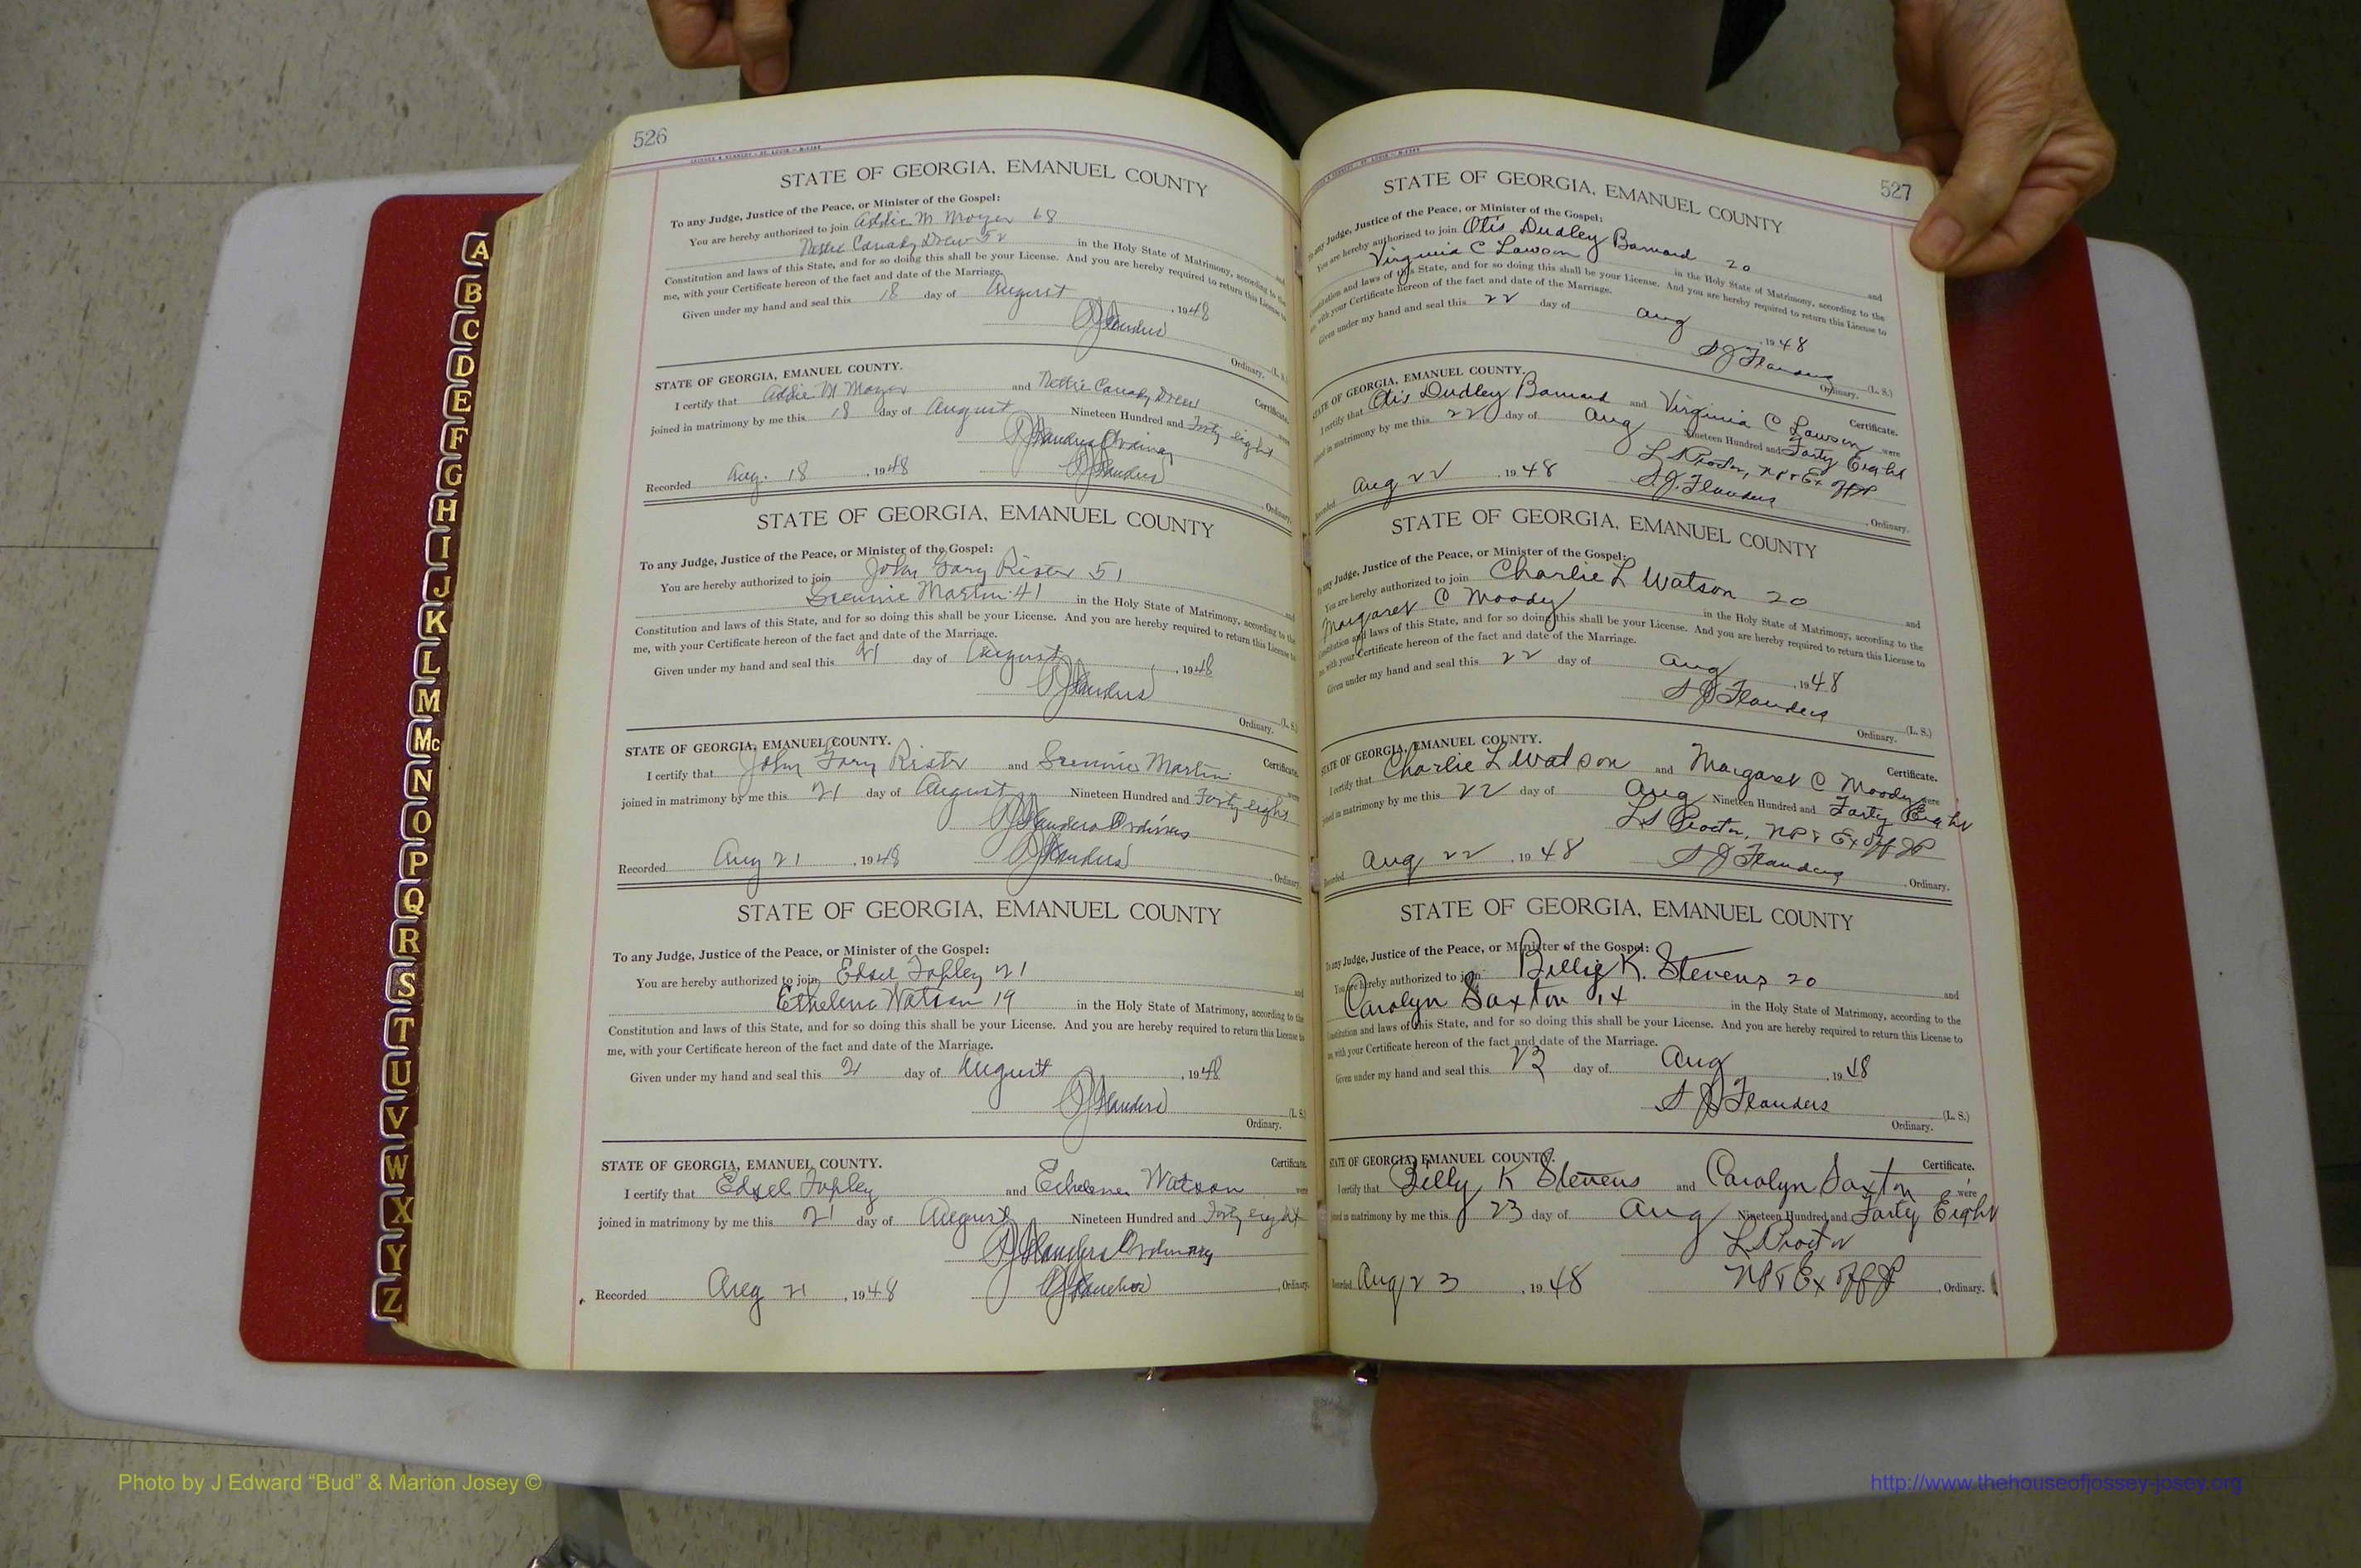 526
STATE OF GEORGIA, EMANUEL COUNTY
To any Judge, Justice of the Peace, or Minister of the Gospel:
You are hereby authorized to join Addie M Moyer 68
Nettie Canady Drew 52 in the Holy State of Matrimony, according to the
Constitution and laws of this State, and for so doing this shall be your License. And you are hereby required to return this License to
me, with your Certificate hereon of the fact and date of the Marriage.
Given under my hand and seal this 18 day of August, 1948
Ordinary. (L. S.)
STATE OF GEORGIA, EMANUEL COUNTY. Certificate.
I certify that Addie M Moyer and Nettie Canady Drew
joined in matrimony by me this 18 day of August Nineteen Hundred and Forty eight
Flanders Ordinary
Recorded Aug. 18, 1948 Flanders, Ordinary.
STATE OF GEORGIA, EMANUEL COUNTY
To any Judge, Justice of the Peace, or Minister of the Gospel:
You are hereby authorized to join John Gary Rister 51 and
Martin 41 in the Holy State of Matrimony, according to the
Constitution and laws of this State, and for so doing this shall be your License. And you are hereby required to return this License to
me, with your Certificate hereon of the fact and date of the Marriage.
Given under my hand and seal this 21 day of August, 1948
Flanders (L. S.)
Ordinary.
STATE OF GEORGIA, EMANUEL COUNTY. Certificate.
I certify that John Gary Rister and Martin were
joined in matrimony by me this 21 day of August Nineteen Hundred and Forty eight
Flanders Ordinary
Recorded Aug 21, 1948 Flanders, Ordinary.
STATE OF GEORGIA, EMANUEL COUNTY
To any Judge, Justice of the Peace, or Minister of the Gospel:
You are hereby authorized to join Edsel Fopley 21 and
Ethelene Watson 19 in the Holy State of Matrimony, according to the
Constitution and laws of this State, and for so doing this shall be your License. And you are hereby required to return this License to
me, with your Certificate hereon of the fact and date of the Marriage.
Given under my hand and seal this 21 day of August, 1948
Flanders (L. S.)
Ordinary.
STATE OF GEORGIA, EMANUEL COUNTY. Certificate.
I certify that Edsel Fopley and Ethelene Watson were
joined in matrimony by me this 21 day of August Nineteen Hundred and Forty eight
Flanders Ordinary
Recorded Aug 21, 1948 Flanders, Ordinary.
527
STATE OF GEORGIA, EMANUEL COUNTY
To any Judge, Justice of the Peace, or Minister of the Gospel:
You are hereby authorized to join Otis Dudley Barnard 20 and
Virginia C Lawson in the Holy State of Matrimony, according to the
Constitution and laws of this State, and for so doing this shall be your License. And you are hereby required to return this License to
me, with your Certificate hereon of the fact and date of the Marriage.
Given under my hand and seal this 22 day of Aug, 1948
S J Flanders (L. S.)
Ordinary.
STATE OF GEORGIA, EMANUEL COUNTY. Certificate.
I certify that Otis Dudley Barnard and Virginia C Lawson were
joined in matrimony by me this 22 day of Aug Nineteen Hundred and Forty Eight
L S Proctor, NP & Ex Off JP
Recorded Aug 22, 1948 S. J. Flanders, Ordinary.
STATE OF GEORGIA, EMANUEL COUNTY
To any Judge, Justice of the Peace, or Minister of the Gospel:
You are hereby authorized to join Charlie L Watson 20 and
Margaret C Moody in the Holy State of Matrimony, according to the
Constitution and laws of this State, and for so doing this shall be your License. And you are hereby required to return this License to
me, with your Certificate hereon of the fact and date of the Marriage.
Given under my hand and seal this 22 day of Aug, 1948
S J Flanders (L. S.)
Ordinary.
STATE OF GEORGIA, EMANUEL COUNTY. Certificate.
I certify that Charlie L Watson and Margaret C Moody were
joined in matrimony by me this 22 day of Aug Nineteen Hundred and Forty Eight
L S Proctor, NP & Ex Off JP
Recorded Aug 22, 1948 S J Flanders, Ordinary.
STATE OF GEORGIA, EMANUEL COUNTY
To any Judge, Justice of the Peace, or Minister of the Gospel:
You are hereby authorized to join Billy K. Stevens 20 and
Carolyn Saxton 14 in the Holy State of Matrimony, according to the
Constitution and laws of this State, and for so doing this shall be your License. And you are hereby required to return this License to
me, with your Certificate hereon of the fact and date of the Marriage.
Given under my hand and seal this 23 day of Aug, 1948
S J Flanders (L. S.)
Ordinary.
STATE OF GEORGIA, EMANUEL COUNTY. Certificate.
I certify that Billy K Stevens and Carolyn Saxton were
joined in matrimony by me this 23 day of Aug Nineteen Hundred and Forty Eight
L S Proctor
Recorded Aug 23, 1948 NP & Ex Off JP, Ordinary.
A
B
C
D
E
F
G
H
I
J
K
L
M
Mc
N
O
P
Q
R
S
T
U
V
W
X
Y
Z
Photo by J Edward “Bud” & Marion Josey ©
http://www.thehouseofjossey-josey.org